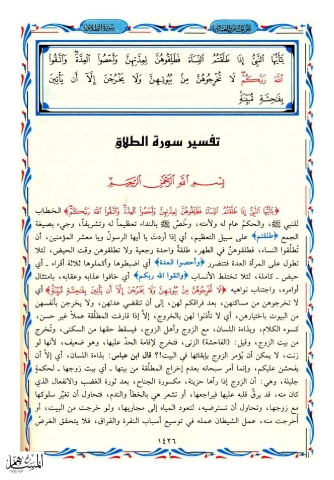 سورة الطلاق
يَٰٓأَيُّهَا ٱلنَّبِيُّ إِذَا طَلَّقۡتُمُ ٱلنِّسَآءَ فَطَلِّقُوهُنَّ لِعِدَّتِهِنَّ وَأَحۡصُواْ ٱلۡعِدَّةَۖ وَٱتَّقُواْ
ٱللَّهَ رَبَّكُمۡۖ لَا تُخۡرِجُوهُنَّ مِنۢ بُيُوتِهِنَّ وَلَا يَخۡرُجۡنَ إِلَّآ أَن يَأۡتِينَ
بِفَٰحِشَةٖ مُّبَيِّنَةٖۚ
تفسير سورة الطلاق
بسم الله الرحمن الرحيم
﴿يَا أَيُّهَا النَّبِيُّ إِذَا طَلَّقْتُمُ النِّسَاءَ فَطَلِّقُوهُنَّ لِعِدَّتِهِنَّ وَأَحْصُوا الْعِدَّةَ وَاتَّقُوا اللَّهَ رَبَّكُمْ﴾ الخطاب
للنبي ﷺ، والحكم عام له ولأمته، وخُصَّ ﷺ بالنداء تعظيماً له وتشريفاً، وجيء بصيغة
الجمع ﴿طلقتم﴾ على سبيل التعظيم، أي إذا أردتَ يا أيها الرسولُ ويا معشر المؤمنين، أن
تُطلِّقوا النساء، فطلقوهنَّ في الطهر، طلقةً واحدة رجعية ولا تطلقوهن وقت الحيض، لئلا
تطول على المرأة العدة فتتضرر ﴿وأحصوا العدة﴾ أي اضبطوها وأكملوها ثلاثة أقراء ـ أي
حيض ـ كاملة، لئلا تختلط الأنساب ﴿واتقوا الله ربكم﴾ أي خافوا عذابه وعقابه، بامتثال
أوامره، واجتناب نواهيه ﴿لَا تُخْرِجُوهُنَّ مِنْ بُيُوتِهِنَّ وَلَا يَخْرُجْنَ إِلَّا أَنْ يَأْتِينَ بِفَاحِشَةٍ مُبَيِّنَةٍ﴾ أي
لا تخرجوهن من مساكنهن، بعد فراقكم لهن، إلى أن تنقضي عدتهن، ولا يخرجن بأنفسهن
من البيوت باختيارهن، أي لا تأذنوا لهن بالخروج، إلاَّ إذا قارفت المطلَّقة عملاً غير حسن،
كسوء الكلام، وبذاءة اللسان، مع الزوج وأهل الزوج، فيسقط حقها من السكنى، وتُخرج
من بيت الزوج، وقيل: (الفاحشة) الزنى، فتخرج لإقامة الحدِّ عليها، وهو ضعيف، لأنها لو
زنت، لا يمكن أن يُؤمر الزوج بإبقائها في البيت!؟ قال ابن عباس: بذاءة اللسان، أي إلاَّ أن
يفحشن عليكم، وإنما أمر سبحانه بعدم إخراج المطلَّقة من بيتها ـ أي بيت زوجها ـ لحكمةٍ
جليلة، وهي: أن الزوج إذا رآها حزينة، مكسورة الجناح، بعد ثورة الغضب والانفعال الذي
كان منه، قد يرقُّ قلبه عليها فيراجعها، أو تشعر هي بالخطأ والندم، فتحاول أن تغيّر سلوكها
مع زوجها، وتحاول أن تسترضيه، لتعود المياه إلى مجاريها، ولو خرجت من البيت، أو
أخرجت منه، عمل الشيطان عمله في توسيع أسباب النفرة والفراق، فلا يتحقق الغرضُ
١٤٢٦